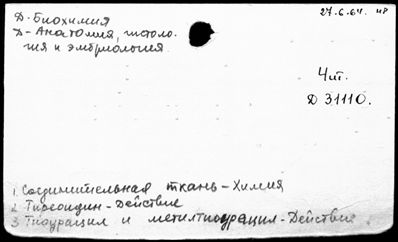 Д-Биохимия
27.6.64. нр
Д-Анатомия, гистоло-
гия и эмбриология.
Чит.
Д 31110.
1. Соединительная ткань-Химия
2. Тиреоидин-Действие
3. Тиоурацил и метилтиоурацил-Действие.